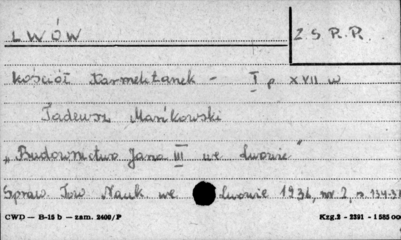 LWÓW
Z.S.R.R.
Kościół Karmelitanek – I p. XVII w
Tadeusz Mańkowski
„Budownictwo Jana III we Lwowie"
Spraw. Tow. Nauk. we Lwowie 1936, nr 2, s. 134-37
CWD — B-15 b — zam. 2400/P Kzg.2 - 2291 - 1 585 00